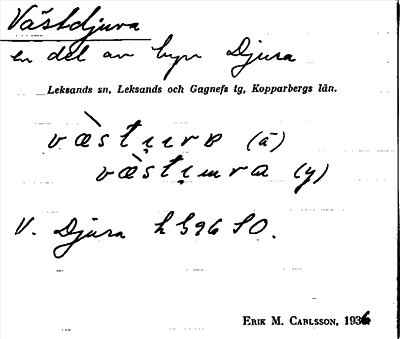 Västdjura
en del av byn Djura
Leksands sn, Leksands och Gagnefs tg, Kopparbergs län.
(ä)
(y)
V. Djura h 596 SO.
ERIK M. CARLSSON, 1936